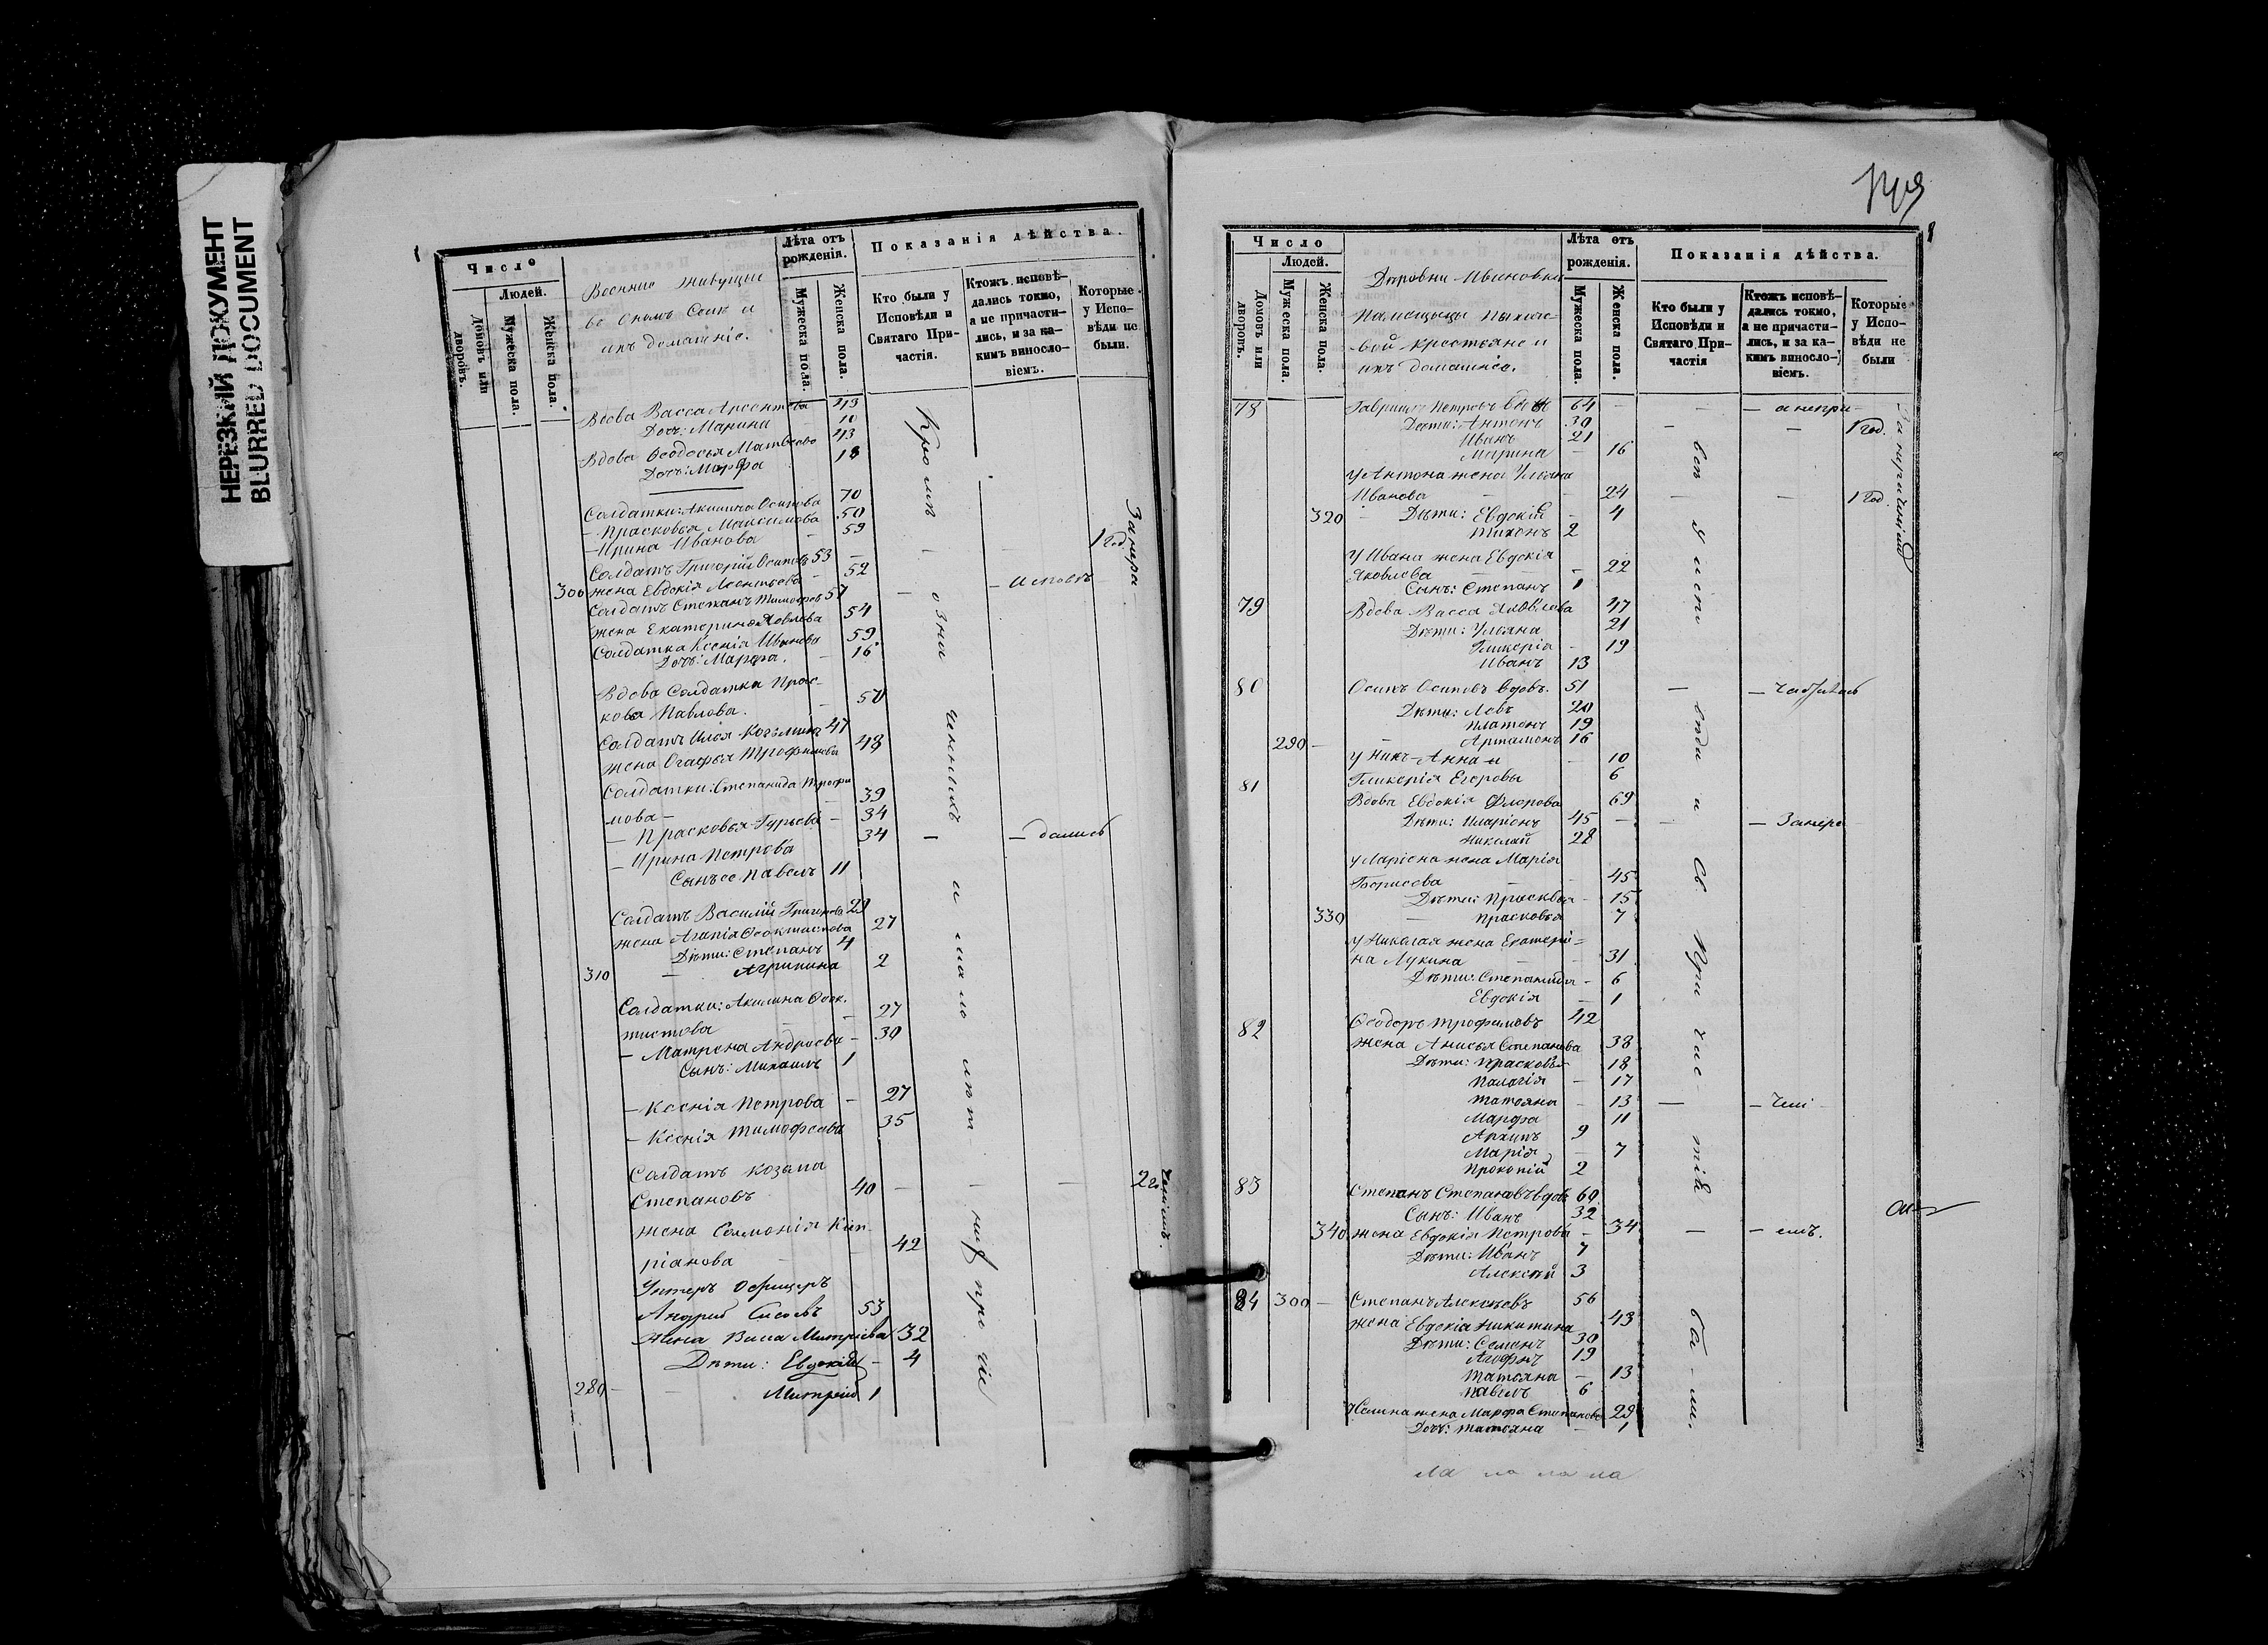 НЕРЕЗКИЙ ДОКУМЕНТ
BLURRED DOCUMENT
Число
Людей.
Домовъ или дворовъ.
Мужеска пола.
Женска пола.
Военние живущие
во ономъ Селѣ и
ихъ домашніе.
Лѣта отъ рожденія.
Мужеска пола.
Женска пола.
Показанія дѣйства.
Кто были у Исповѣди и Святаго Причастія.
Ктожъ исповѣдались токмо, а не причастились, и за какимъ винословіемъ.
Которые у Исповѣди не были.
Вдова Васса Арсентева 43
Дочь: Марина 10
Вдова Ѳеодосья Матвеева 43
Дочь: Марфа 18
Солдатки: Акилина Осипова 70
– Прасковья Максимова 50
– Ирина Иванова 59
1 год
Солдатъ Григорій Осиповъ 53
300 жена Евдокія Леонтьева – 52
– исповѣ
Солдатъ Степанъ Тимофеевъ 57
жена Екатерина Яковлева 54
Солдатка Ксенія Иванова 59
Дочь: Марфа. – 16
Вдова Солдатка Прас-
ковья Павлова. – 50
Солдатъ Илья Козьминъ 47
жена Огафья Трофимова 48
Солдатки: Степанида Трофи
мова – 39
– Прасковья Гурьева – 34
– Ирина Петрова 34 – – дались
Сынъ ее Павелъ 11
Солдатъ Василій Григорьевъ 29
жена Агапія Ѳеоктистова 27
Дѣти: Степанъ 4
310 – Агрипина 2
Солдатки: Акилина Ѳеок.
тистова – 27
– Матрена Андреева – 30
Сынъ: Михаилъ 1
– Ксенія Петрова – 27
– Ксенія Тимофеева 35
Солдатъ Козьма
Степановъ 40 – – – 2 го
жена Соломонія Кип-
ріанова – 42
Унтеръ Офицеръ
Андрей Сисоевъ 53
Жена Васса Митріева 32
Дѣти: Евдокія – 4
280 – – Митрей 1
Кромѣ
означенныхъ
и малолѣт
нихъ прочіе
Занера
ченіемъ.
Число
Людей.
Домовъ или дворовъ.
Мужеска пола.
Женска пола.
Деровни Ивановки
Помещыцы Пыхаче-
вой крестьяне и
ихъ домашніе.
Лѣта отъ рожденія.
Мужеска пола.
Женска пола.
Показанія дѣйства.
Кто были у Исповѣди и Святаго Причастія
Ктожъ исповѣдались токмо, а не причастились, и за какимъ винословіемъ.
Которые у Исповѣди не были
78 Гаврилъ Петровъ вдов 64 – – – а непри –
Дѣти: Антонъ 30 – – 1 год.
Иванъ 21
Марина – 16
У Антона жена Ульяна
Иванова – – 24 – – 1 год
320 – Дѣти: Евдокія – 4
Тихонъ 2
У Ивана жена Евдокія
Яковлева – – 22
Сынъ: Степанъ 1
79 Вдова Васса Яковлева 47
Дѣти: Ульяна 21
Гликерія – 19
Иванъ 13
80 Осипъ Осиповъ вдовъ. 51 –
Дѣти: Левъ 20
Платонъ 19
290 – – Артамонъ 16
У Нихъ Анна и – 10
81 Гликерія Егоровы 6
Вдова Евдокія Флорова 69
Дѣти: Иларіонъ 45 – – – Занера
Николай 28
У Ларіона жена Марія
Борисова – – 45
Дѣти: Прасковья – 15
330 – Прасковья 7
У Николая жена Екатери=
на Лукина – – 31
Дѣти: Степанида – 6
Евдокія – 1
82 Ѳеодоръ Трофимовъ 42
жена Анисья Степанова 38
Дѣти: Прасковья 18
Палагія – 17
Татьяна – 13 – – чені –
Марфа – 11
Архипъ 9
Марія – 7
Прокопій 2
83 Степанъ Степановъ вдовъ 60
Сынъ: Иванъ 32
340 жена Евдокія Петрова – 34 – – емъ.
Дѣти: Иванъ 7
Алексѣй 3
84 300 – Степанъ Алексѣевъ 56
жена Евдокія Никитина 43
Дѣти: Семенъ 30
Агафонъ 19
Татьяна – 13
Павелъ 6
У Семина жена Марфа Степанова 29
Дочь: Татьяна – 1
всѣ
у испо
вѣди и
Св.
При
час
тія
бы-ли.
Занераченіемъ
ла ла ла ла